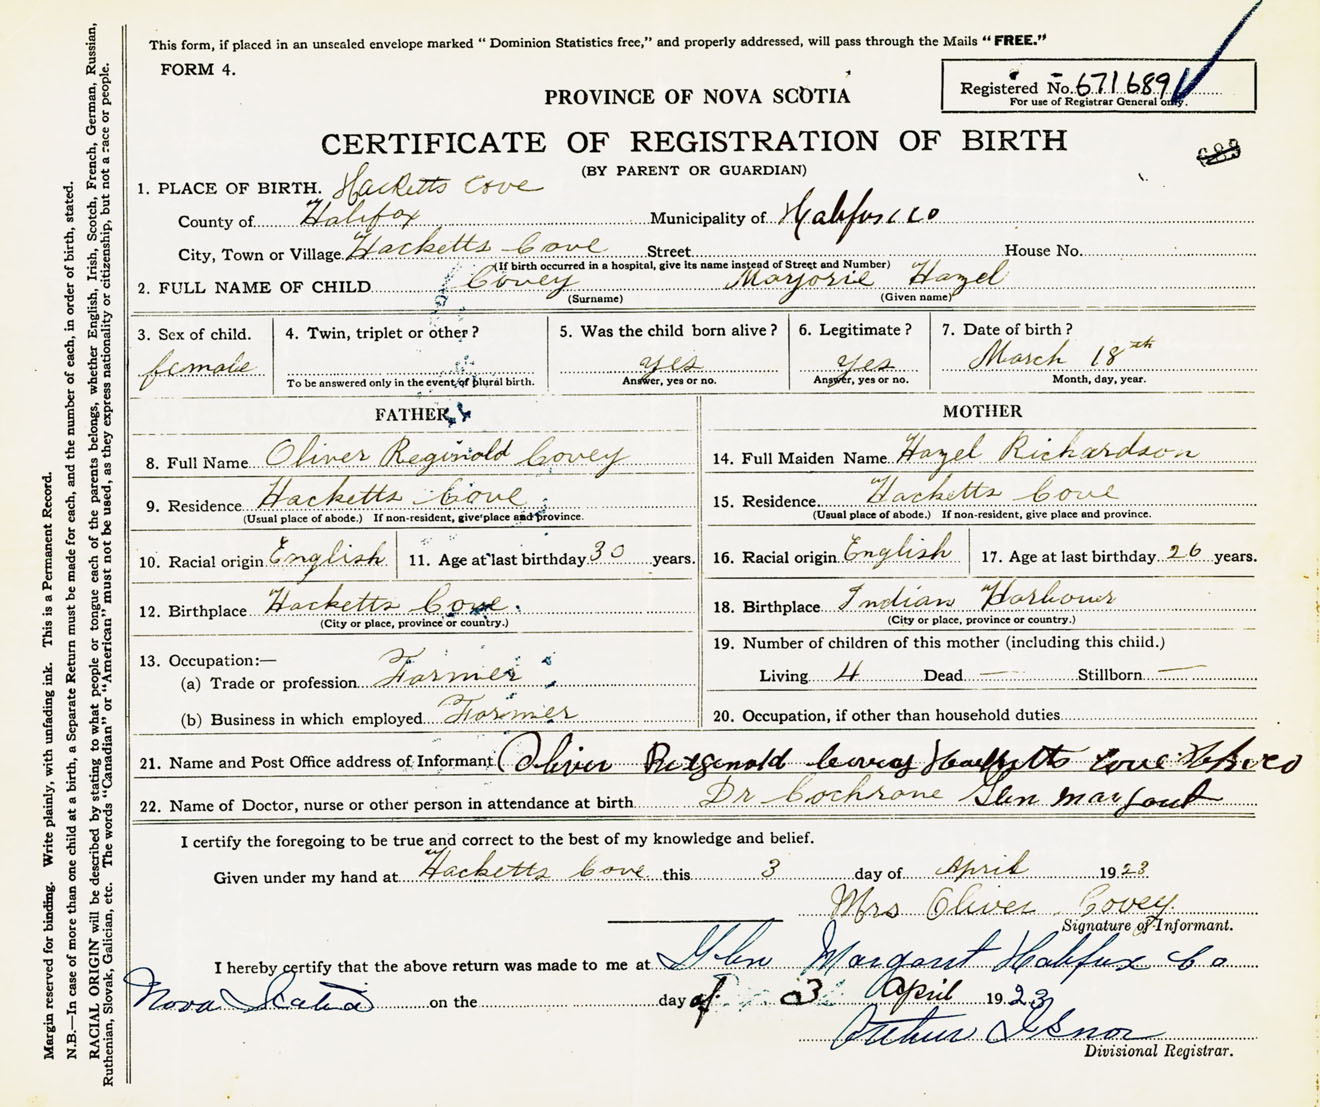 This form, if placed in an unsealed envelope marked “ Dominion Statistics free,” and properly addressed, will pass through the Mails “FREE.”
FORM 4.
Registered No. 671689
For use of Registrar General only.
PROVINCE OF NOVA SCOTIA
CERTIFICATE OF REGISTRATION OF BIRTH
(BY PARENT OR GUARDIAN)
689
1. PLACE OF BIRTH. Hacketts Cove
County of Halifax Municipality of Halifax co
City, Town or Village Hacketts Cove Street House No.
(If birth occurred in a hospital, give its name instead of Street and Number)
2. FULL NAME OF CHILD Covey Marjorie Hazel
(Surname) (Given name)
3. Sex of child. female
4. Twin, triplet or other ?
To be answered only in the event of plural birth.
5. Was the child born alive ? yes
Answer, yes or no.
6. Legitimate ? yes
Answer, yes or no.
7. Date of birth ? March 18th
Month, day, year.
FATHER
8. Full Name Oliver Reginold Covey
9. Residence Hacketts Cove
(Usual place of abode.) If non-resident, give place and province.
10. Racial origin English 11. Age at last birthday 30 years.
12. Birthplace Hacketts Cove.
(City or place, province or country.)
13. Occupation:—
(a) Trade or profession Farmer
(b) Business in which employed Farmer
MOTHER
14. Full Maiden Name Hazel Richardson
15. Residence Hacketts Cove
(Usual place of abode.) If non-resident, give place and province.
16. Racial origin English 17. Age at last birthday 26 years.
18. Birthplace Indian Harbour
(City or place, province or country.)
19. Number of children of this mother (including this child.)
Living 4 Dead — Stillborn —
20. Occupation, if other than household duties
21. Name and Post Office address of Informant Oliver Reginold Covey Hacketts Cove
22. Name of Doctor, nurse or other person in attendance at birth Dr Cochrane Glen Margaret
I certify the foregoing to be true and correct to the best of my knowledge and belief.
Given under my hand at Hacketts Cove this 3 day of April 1923
Mrs Oliver Covey.
Signature of Informant.
I hereby certify that the above return was made to me at Glen Margaret Halifax Co
Nova Scotia on the day of 3 April 1923
Arthur
Divisional Registrar.
Margin reserved for binding. Write plainly, with unfading ink. This is a Permanent Record.
N.B.—In case of more than one child at a birth, a Separate Return must be made for each, and the number of each, in order of birth, stated.
RACIAL ORIGIN will be described by stating to what people or tongue each of the parents belongs, whether English, Irish, Scotch, French, German, Russian,
Ruthenian, Slovak, Galician, etc. The words “Canadian” or “American” must not be used, as they express nationality or citizenship, but not a race or people.